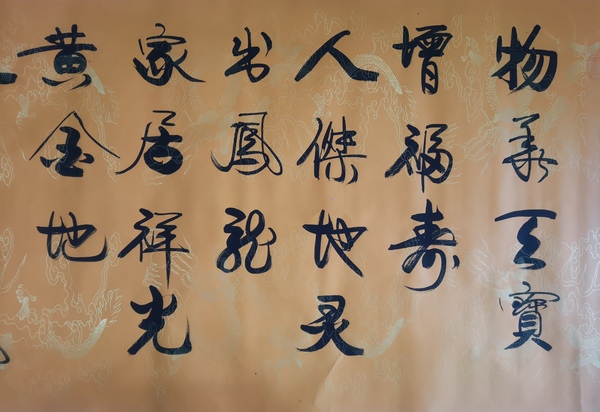 物華天寶
增福寿
人傑地灵
出鳳龍
家居祥光
黄金地